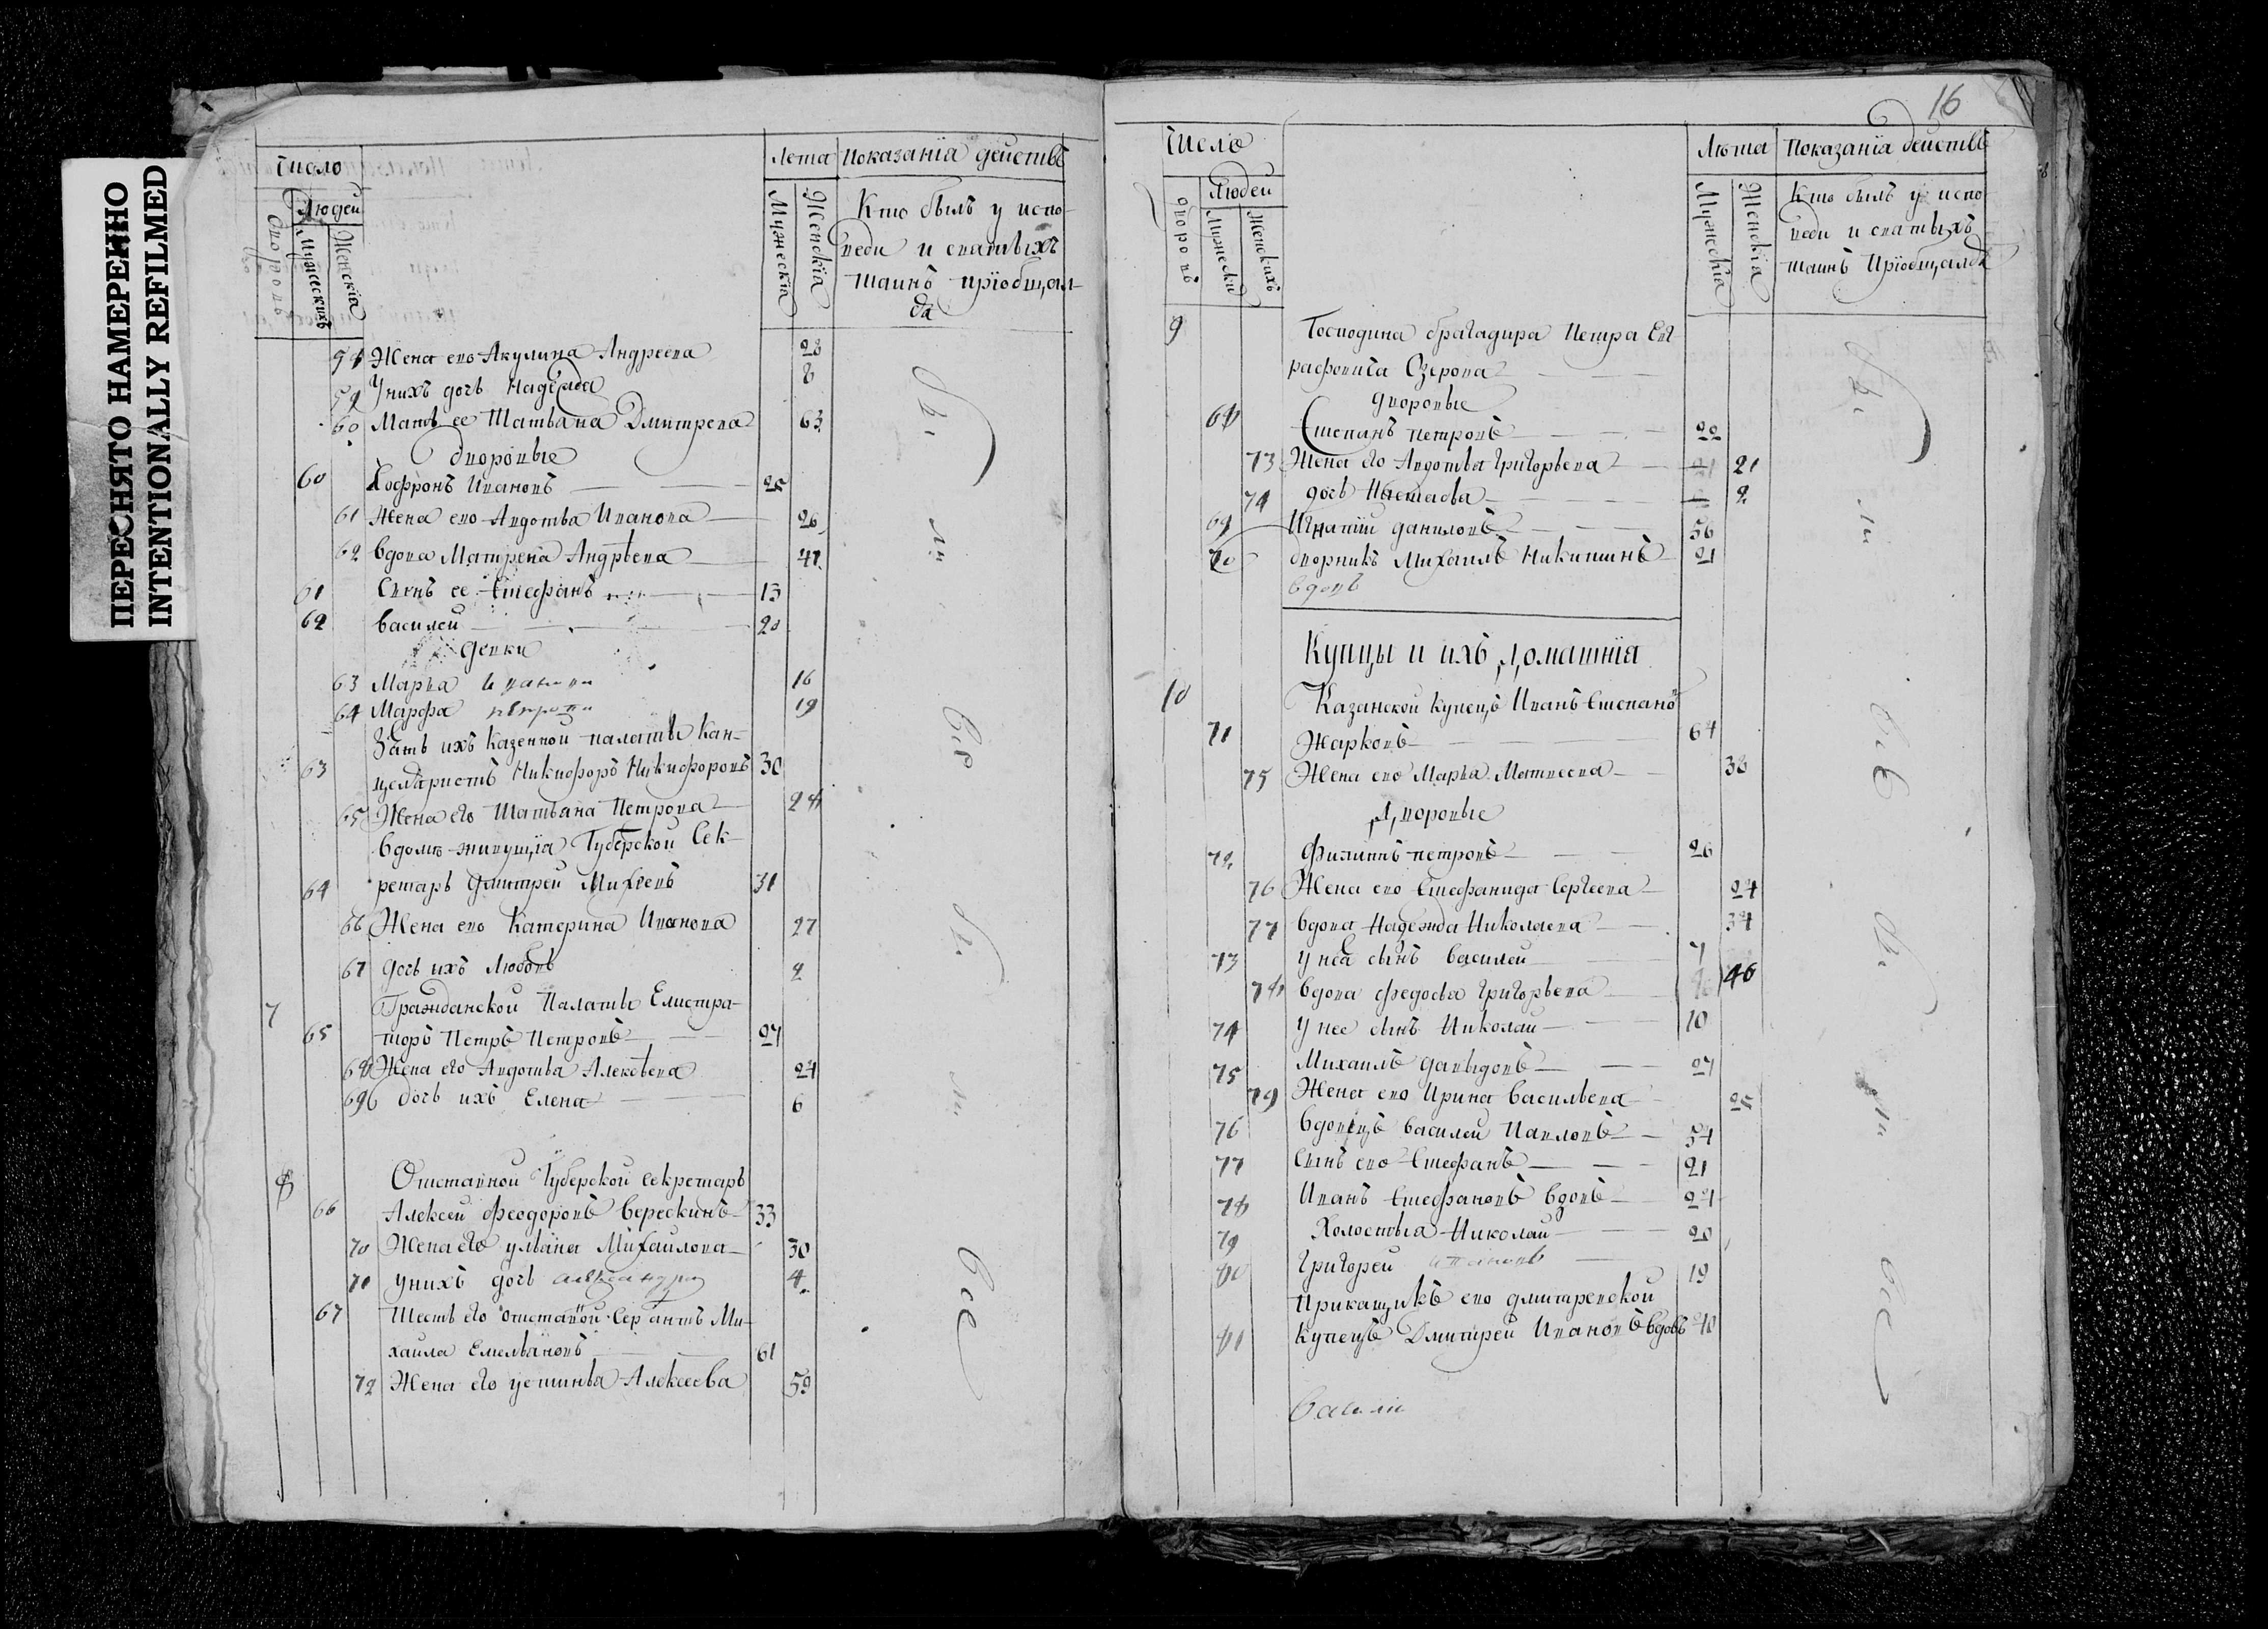 ПЕРЕСНЯТО НАМЕРЕННО
INTENTIONALLY REFILMED
Число
Лета Показанїа действъ
Людей
дворовъ
Мужескихъ
Женскїа
Мужескїа
Женскїа
Кто былъ у испо-
веди и святыхъ
таинъ прїобщал-
ся
58 Жена ево Акулина Андреева 28
59 Унихъ дочь Надежда 8
60 Мать ее Татьяна Дмитрева 63
дворовые
60 Софронъ Ивановъ 25
61 Жена ево Авдотья Иванова 26
62 вдова Матрена Андрѣева 47
61 Сынъ ее Стефанъ 13
62 василей 20
девки
63 Марья Иванова 16
64 Марфа петрова 19
Зять ихъ казенной палаты Кан-
63 целаристъ Никифоръ Никифоровъ 30
65 Жена его Татьяна Петрова 28
вдомѣ живущїа Губерской Сек-
64 ретарь дмитрей Михѣевъ 31
66 Жена ево Катерина Иванова 27
67 дочь ихъ Любовь 2
7 Гражданской Палаты Елистра-
65 торъ Петръ Петровъ 27
68 Жена его Авдотья Алексѣева 24
69 дочь ихъ Елена 6
8 Отставной Губерской секретарь
66 Алексей феодоровъ Верескинъ 33
70 Жена его ульяна Михайлова 30
71 унихъ дочь александра 4
67 Тесть его отставной Сержантъ Ми-
хаила Емельяновъ 61
72 Жена его устинья Алексеева 59
Бы
ли
всѣ
Бы
ли
все
16
Число
Лѣта Показанїа действъ
Людей
дворовъ
Мужески
Женскихъ
Мужескїа
Женскїа
Кто былъ у испо
веди и святыхъ
таинъ Прїобщался
9 Господина брагадира Петра Ев
рафовича Озерова
дворовые
68 Степанъ петровъ 22
73 Жена его Авдотья Григорьева 21
74 дочь Настасья 2
69 Игнатїй даниловъ 56
70 дворникъ Михаилъ Никитинъ 21
вдовъ
Купцы и ихъ домашнїа
10 Казанской купецъ Иванъ Степано
71 Жарковъ 64
75 Жена ево Марья Матвеева 38
дворовые
72 Филипъ петровъ 26
76 Жена ево Стефанида Сергеева 24
77 вдова Надежда Николаева 34
73 у неа сынъ василей 7
78 вдова федосья Григорьева 46
74 у нее сынъ Николай 10
75 Михаилъ давыдовъ 27
79 Жена ево Ирина васильева 25
76 вдовецъ василей Павловъ 54
77 сынъ ево Стефанъ 21
78 Иванъ Стефановъ вдовъ 24
79 Холостыа Николай 20
80 Григорей ивановъ 19
Прикащикъ ево дмитревской
81 купецъ Дмитрей Ивановъ вдовъ 40
Васили
Бы
ли
все
Бы
ли
все